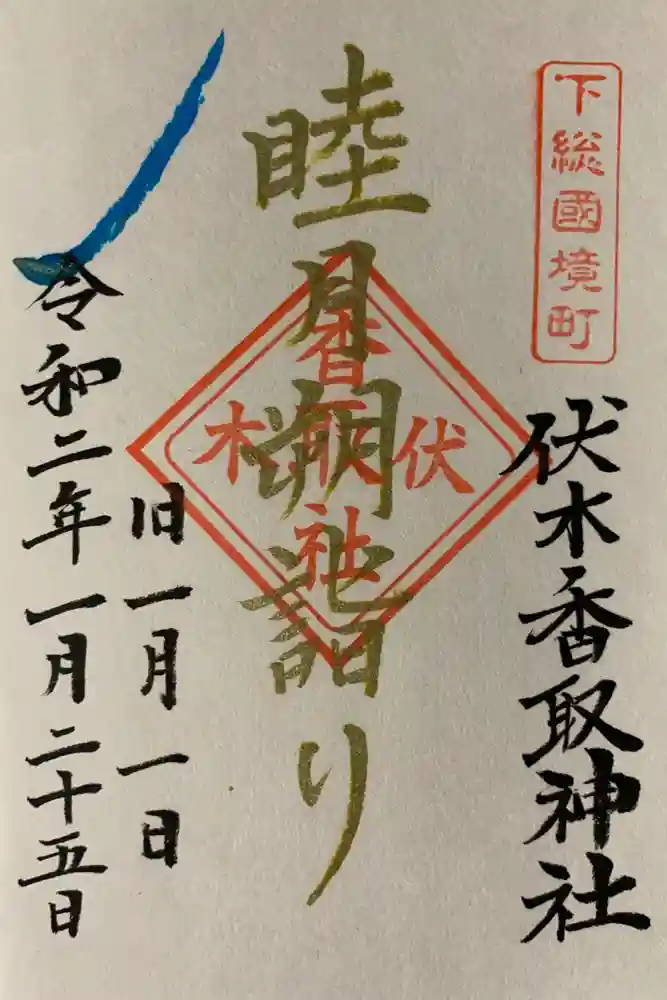 下総國境町
伏木香取神社
睦月朔詣り
伏木
香取
社
旧一月一日
令和二年一月二十五日